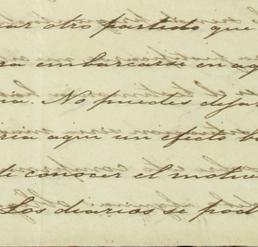 otro partido que
embarcarse en
No puedes dejar
aqui un efecto
conocer el motivo
Los diarios se